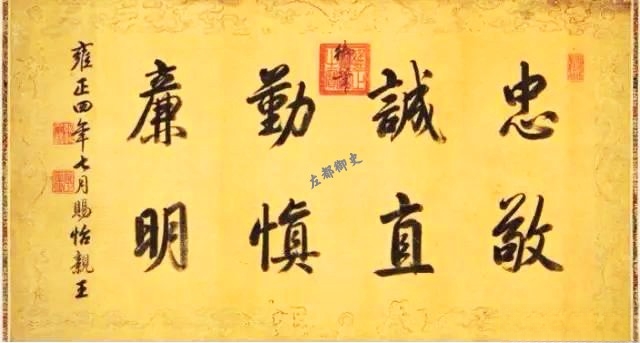 忠敬
誠直
勤慎
廉明
御筆
雍正四年七月賜怡親王
左都御史